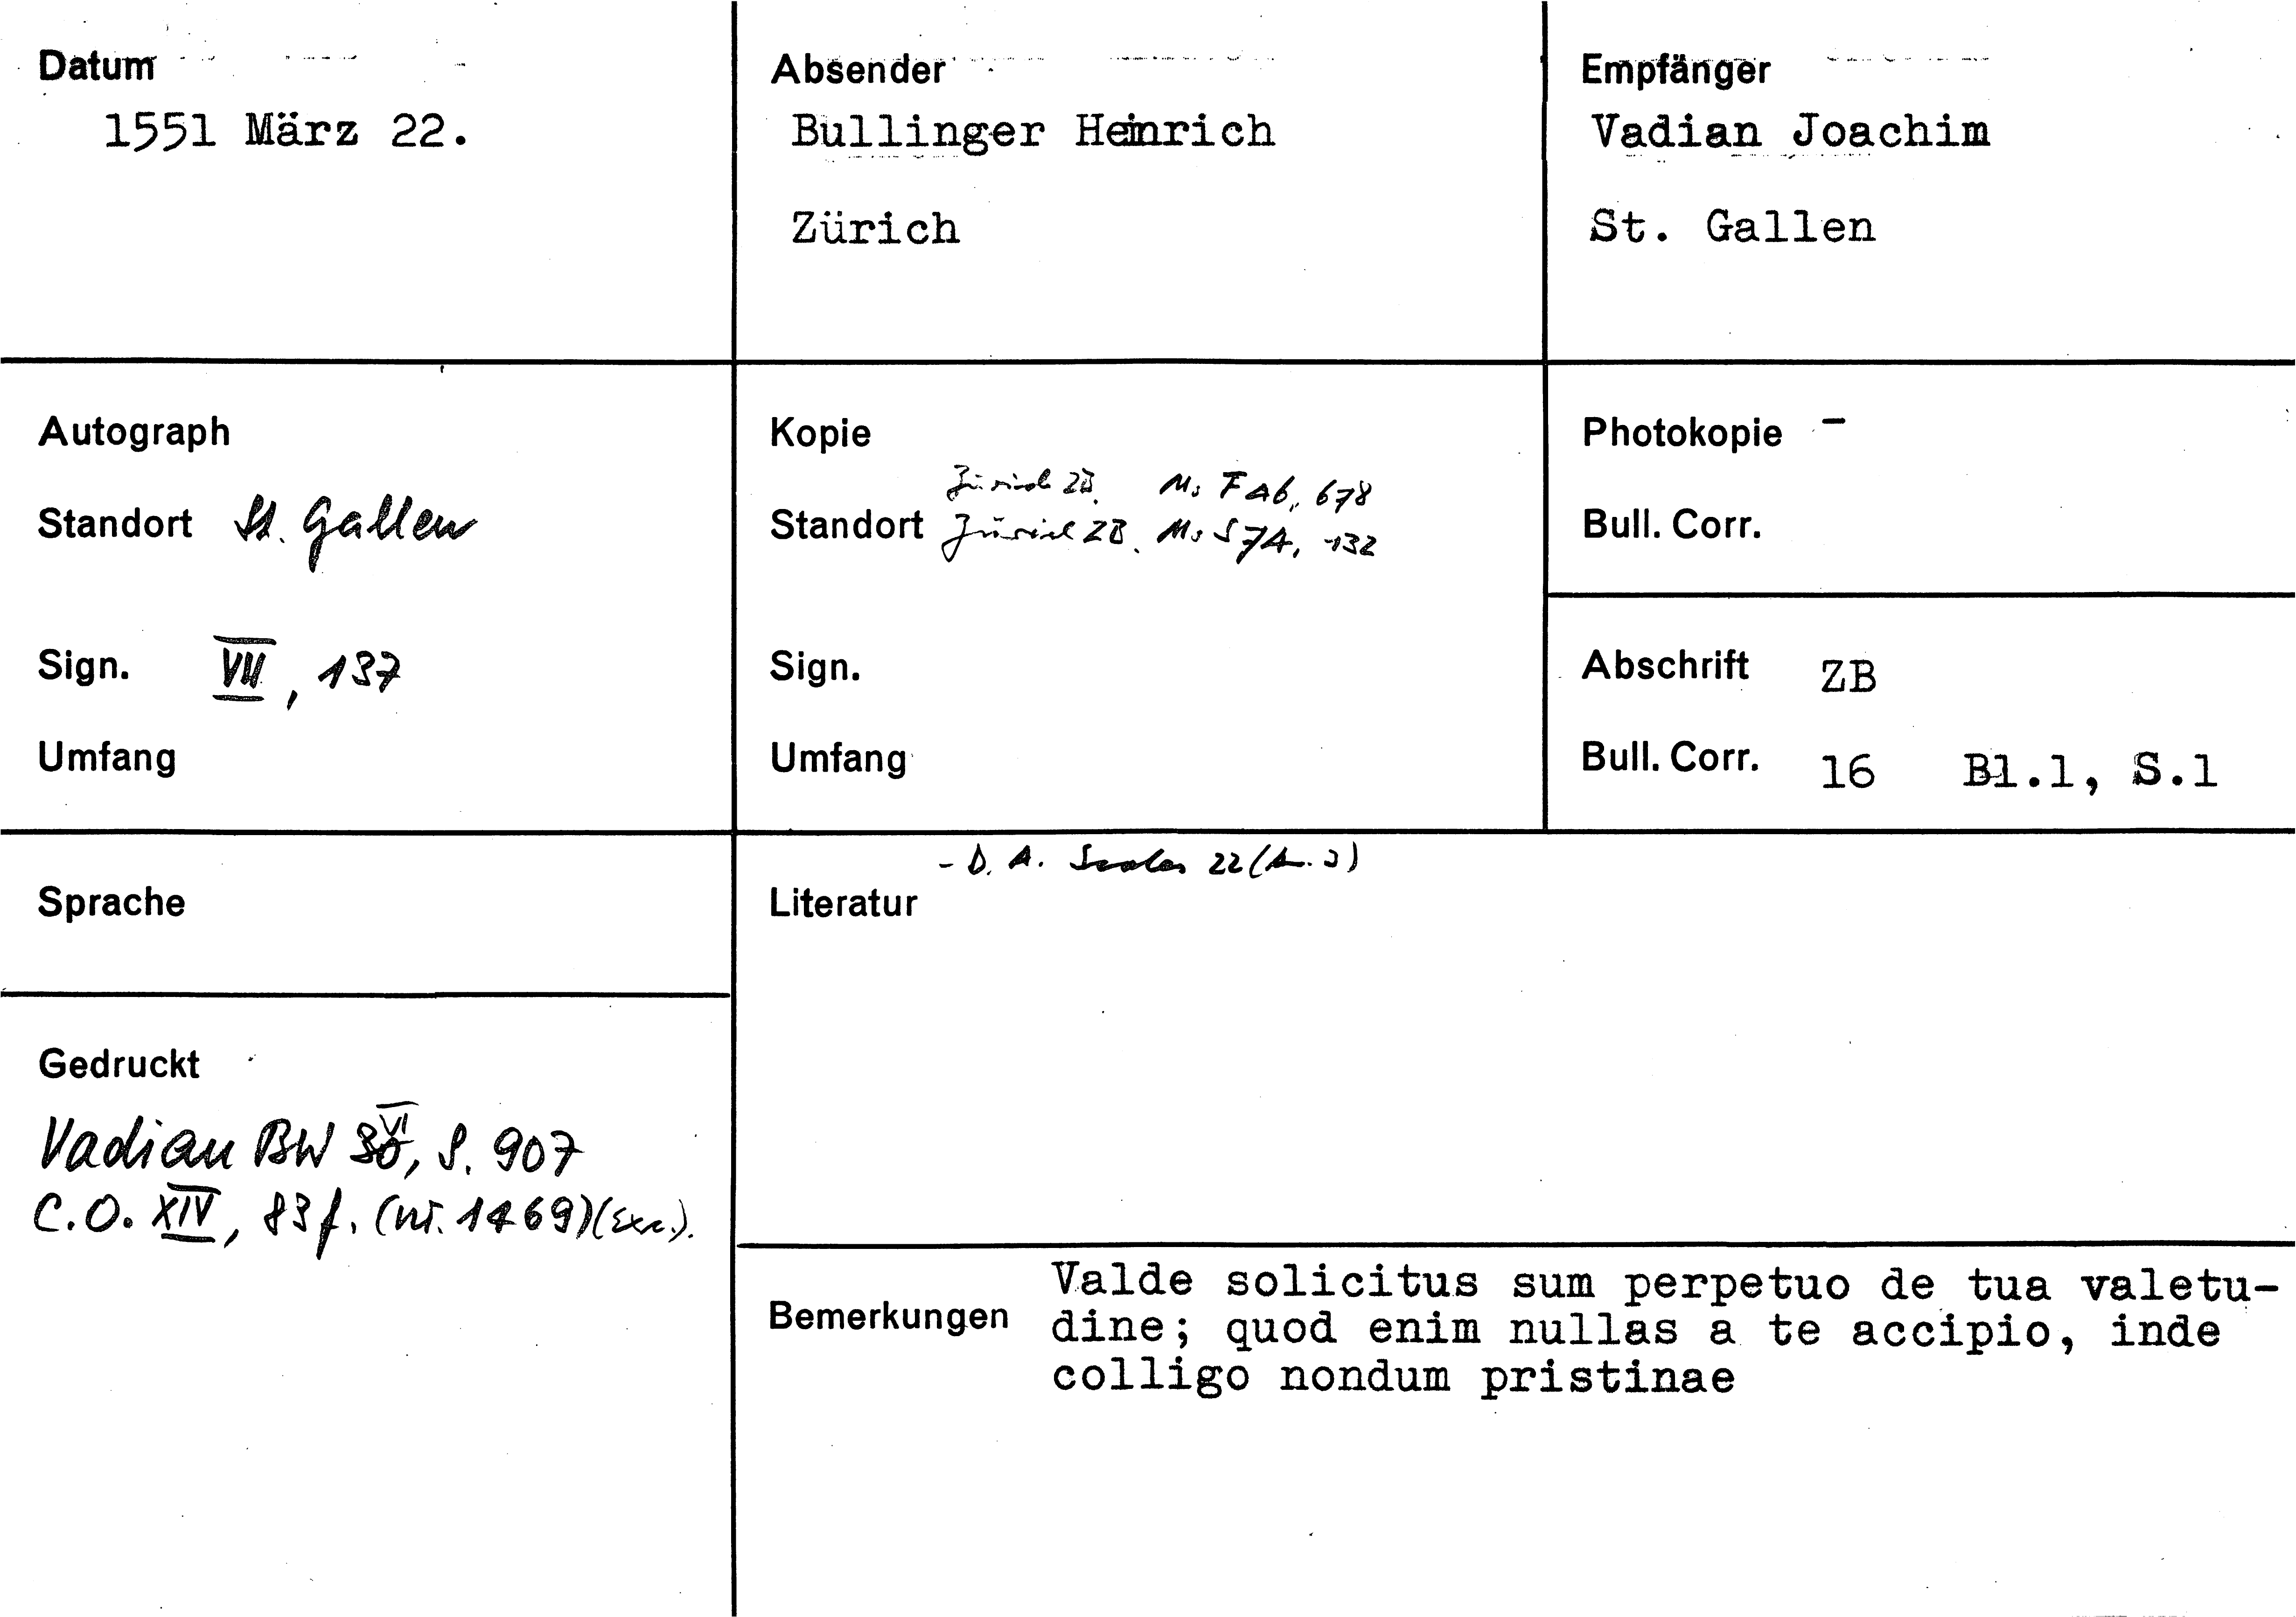 Datum
1551 März 22.
Absender
Bullinger Heinrich
Zürich
Empfänger
Vadian Joachim
St. Gallen
Autograph
Standort St. Gallen
Sign. VII, 137
Umfang
Kopie
Zürich ZB. Ms F 46, 678
Standort Zürich ZB. Ms S 74, 132
Sign.
Umfang
Photokopie -
Bull. Corr.
Abschrift ZB
Bull. Corr. 16 Bl.1, S.1
Sprache
- D. A. 22 (A. 3)
Literatur
Gedruckt
Vadian BW VI, S. 907
C.O. XIV, 83 f. (nr. 1469) (Exc.).
Bemerkungen
Valde solicitus sum perpetuo de tua valetu-
dine; quod enim nullas a te accipio, inde
colligo nondum pristinae